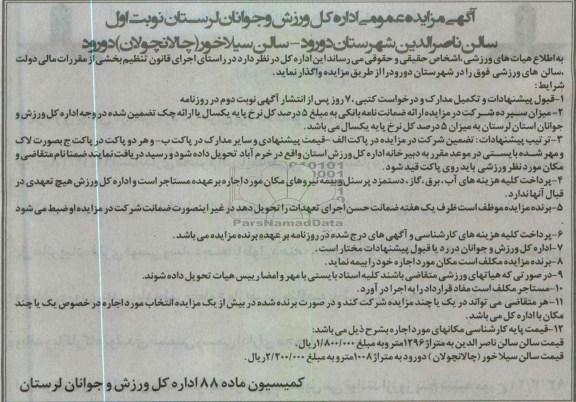 آگهی مزایده عمومی اداره کل ورزش و جوانان لرستان نوبت اول
سالن ناصرالدین شهرستان دورود - سالن سیلاخور (چالانچولان) دورود
به اطلاع هیات های ورزشی، اشخاص حقیقی و حقوقی می رساند این اداره کل در نظر دارد در راستای اجرای قانون تنظیم بخشی از مقررات مالی دولت
،سالن های ورزشی فوق را در شهرستان دورود را از طریق مزایده واگذار نماید.
شرایط:
۱-قبول پیشنهادات و تکمیل مدارک و درخواست کتبی ۷۰ روز پس از انتشار آگهی نوبت دوم در روزنامه
۲-میزان سپرده شرکت در مزایده ارائه ضمانت نامه بانکی به مبلغ ۵ درصد کل نرخ پایه یکسال یا ارائه چک تضمین شده در وجه اداره کل ورزش و
جوانان استان لرستان به میزان ۵ درصد کل نرخ پایه یکسال می باشد.
۳-ترتیب پیشنهادات: تضمین شرکت در مزایده در پاکت الف -قیمت پیشنهادی و سایر مدارک در پاکت ب- و هر دو پاکت در پاکت ج بصورت لاک
و مهر شده بایستی در موعد مقرر به دبیرخانه اداره کل ورزش استان واقع در خرم آباد تحویل داده شود و رسید دریافت نمایند ضمنا نام متقاضی و
مکان مورد نظر ورزشی باید روی پاکت قید شود.
۴-پرداخت کلیه هزینه های آب، برق، گاز، دستمزد پرسنل و بیمه نیروهای مکان مورد اجاره بر عهده مستاجر است و اداره کل ورزش هیچ تعهدی در
قبال آنها ندارد.
۵-برنده مزایده موظف است ظرف یک هفته ضمانت حسن اجرای تعهدات را تحویل دهد در غیر اینصورت ضمانت شرکت در مزایده او ضبط می شود
.
۶-پرداخت کلیه هزینه های کارشناسی و آگهی های درج شده در روزنامه بر عهده برنده مزایده می باشد.
۷-اداره کل ورزش و جوانان در رد یا قبول پیشنهادات مختار است.
۸-برنده مزایده مکلف است مکان مورد اجاره خود را بیمه نماید.
۹-در صورتی که هیاتهای ورزشی متقاضی باشند کلیه اسناد بایستی با مهر و امضا رییس هیات تحویل داده شوند.
۱۰-مستاجر مکلف است مفاد قرارداد را به اجرا در آورد.
۱۱-هر متقاضی می تواند در یک یا چند مزایده شرکت کند و در صورت برنده شده در بیش از یک مزایده انتخاب مورد اجاره در خصوص یک یا چند
مکان با اداره کل می باشد.
۱۲-قیمت پایه کارشناسی مکانهای مورد اجاره بشرح ذیل می باشد:
قیمت سالن سالن ناصرالدین به متراژ ۱۲۹۶ متر و به مبلغ ۱/۸۰۰/۰۰۰ ریال.
قیمت سالن سیلاخور (چالانچولان) دورود به متراژ ۱۰۰۸ متر و به مبلغ ۲/۲۰۰/۰۰۰ ریال.
کمیسیون ماده ۸۸ اداره کل ورزش و جوانان لرستان
ParsNamadData